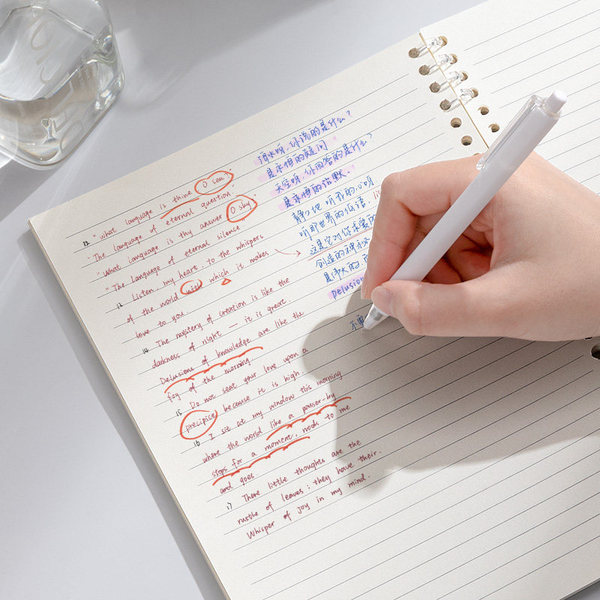 12 "What language is thine, O sea
"The language of eternal question"
"What language is thy answer, O sky
"The language of eternal silence
13 Listen, my heart, to the whispers
of the world with which it makes
love to you
14 The mystery of creation is like the
darkness of night — it is great
Delusions of knowledge are like the
fog of the morning.
15 Do not seat your love upon a
precipice because it is high
16 I sit at my window this morning
where the world like a passer-by
stops for a moment, nods to me
and goes
17 There little thoughts are the
rustle of leaves; they have their
Whisper of joy in my mind.
海水呀,你说的是什么?
是永恒的疑问
天空呀,你回答的是什么?
是永恒的沉默.
静静地听,我的心呀
听那世界的低语,
这是它对你求爱的
创造的神秘
是伟大的,
Delusion